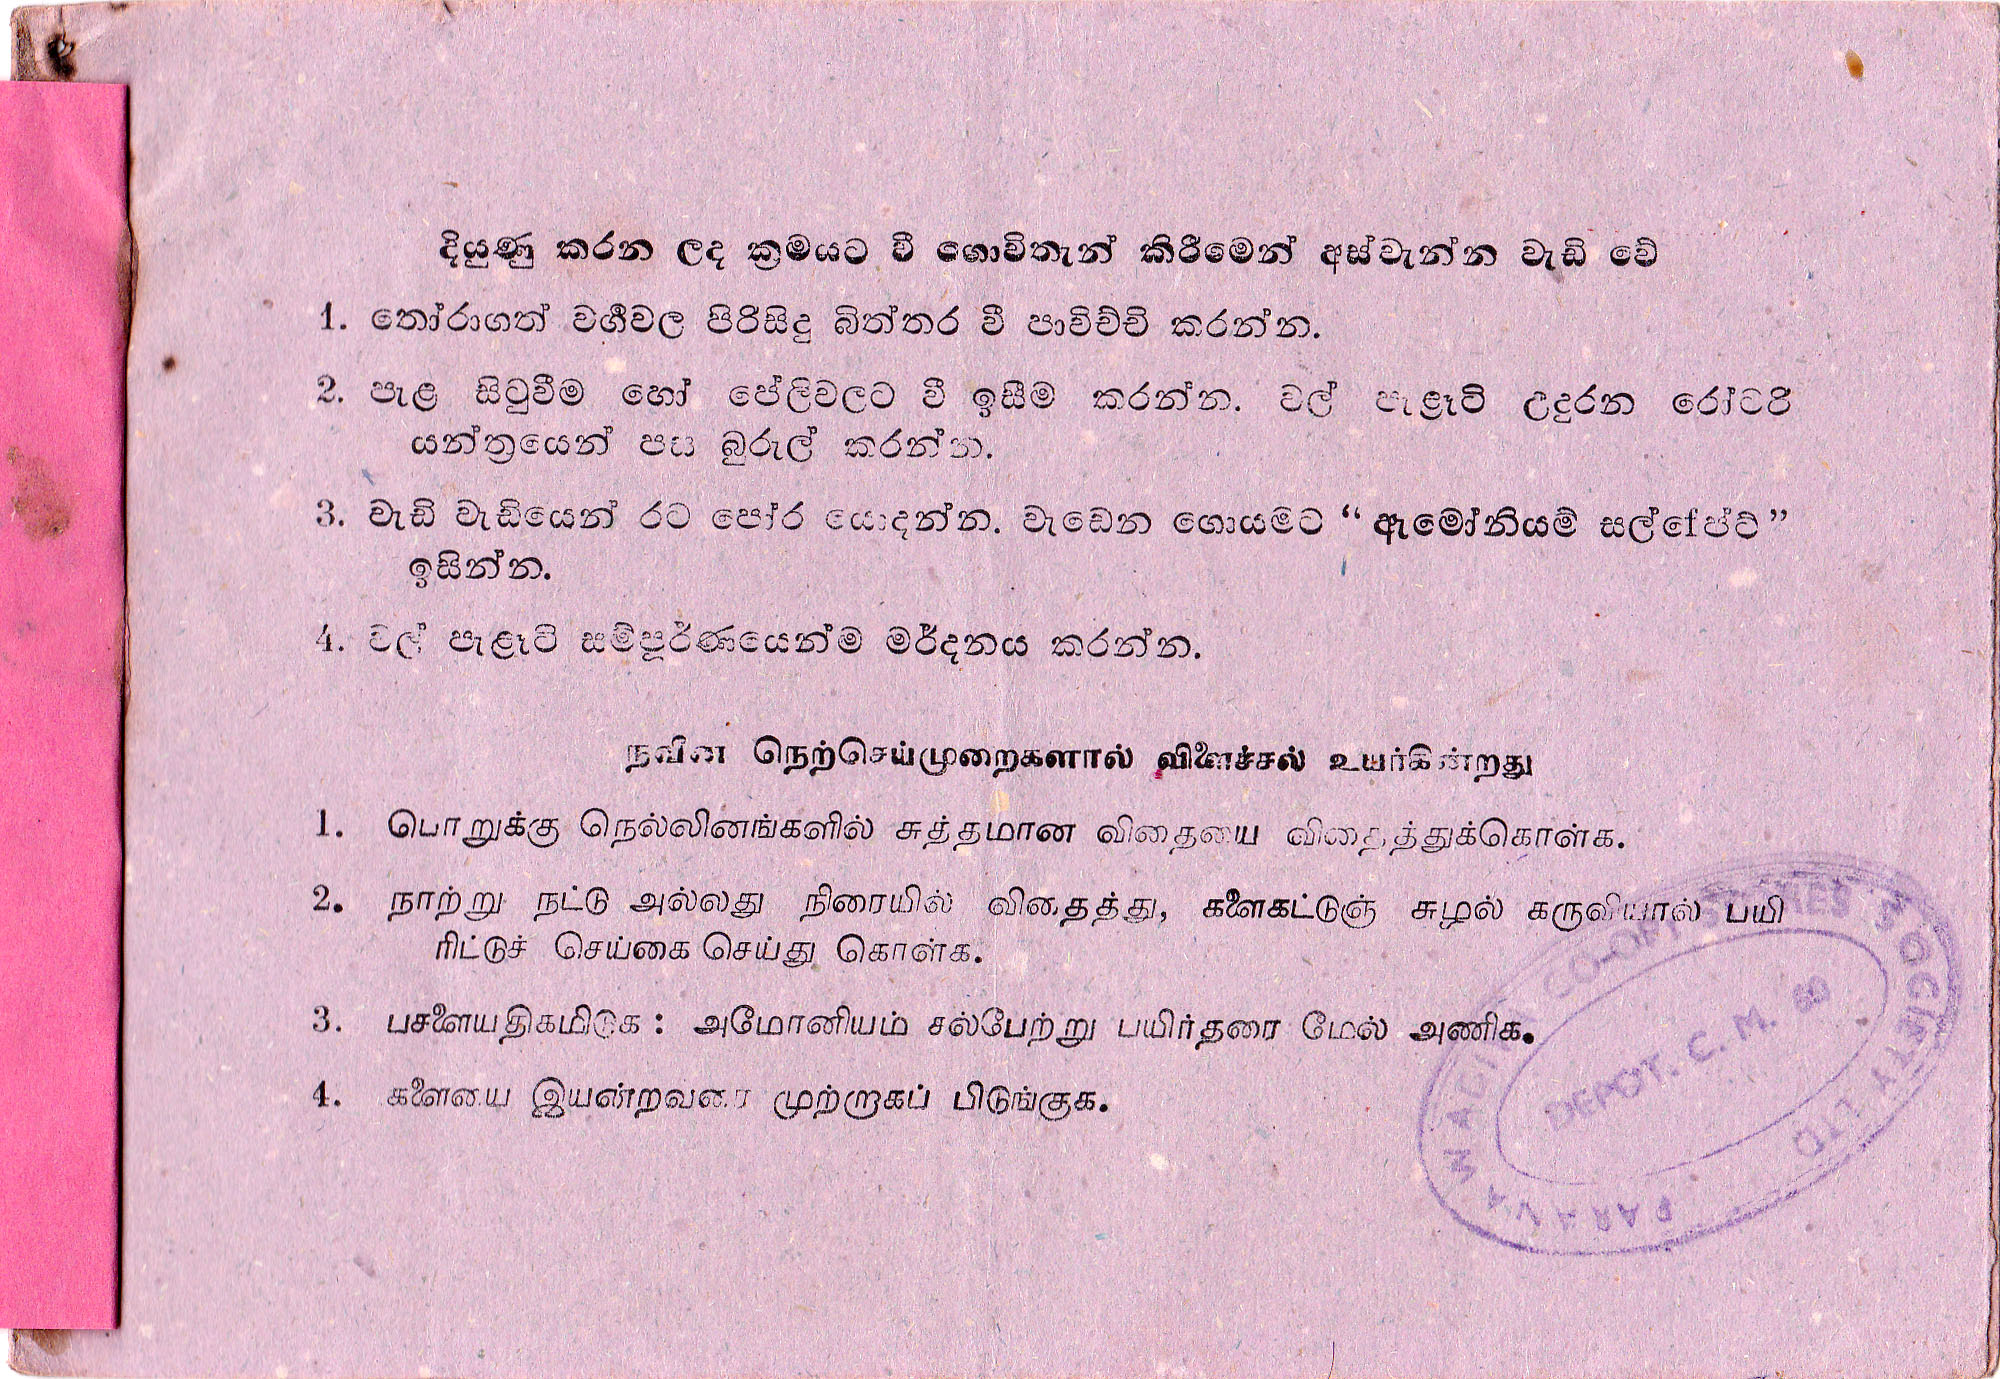 දියුණු කරන ලද ක්‍රමයට වී ගොවිතැන් කිරීමෙන් අස්වැන්න වැඩි වේ
1. තෝරාගත් වර්‍ගවල පිරිසිදු බිත්තර වී පාවිච්චි කරන්න.
2. පැළ සිටුවීම හෝ පේලිවලට වී ඉසීම කරන්න. වල් පැළෑටි උදුරන රෝටරි
යන්ත්‍රයෙන් පස බුරුල් කරන්න.
3. වැඩි වැඩියෙන් රට පෝර යොදන්න. වැඩෙන ගොයමට “ ඇමෝනියම් සල්ෆේට් ”
ඉසින්න.
4. වල් පැළෑටි සම්පූර්ණයෙන්ම මර්දනය කරන්න.
நவின நெற்செய்முறைகளால் விளைச்சல் உயர்கின்றது
1. பொறுக்கு நெல்லினங்களில் சுத்தமான விதையை விதைத்துக்கொள்க.
2. நாற்று நட்டு அல்லது நிரையில் விதைத்து, களைகட்டுஞ் சுழல் கருவியால் பயி
ரிட்டுச் செய்கை செய்து கொள்க.
3. பசளையதிகமிடுக : அமோனியம் சல்பேற்று பயிர்தரை மேல் அணிக.
4. களையை இயன்றவரை முற்றாகப் பிடுங்குக.
CO-OP. STORES SOCIETY LTD
DEPOT. C. M. 69